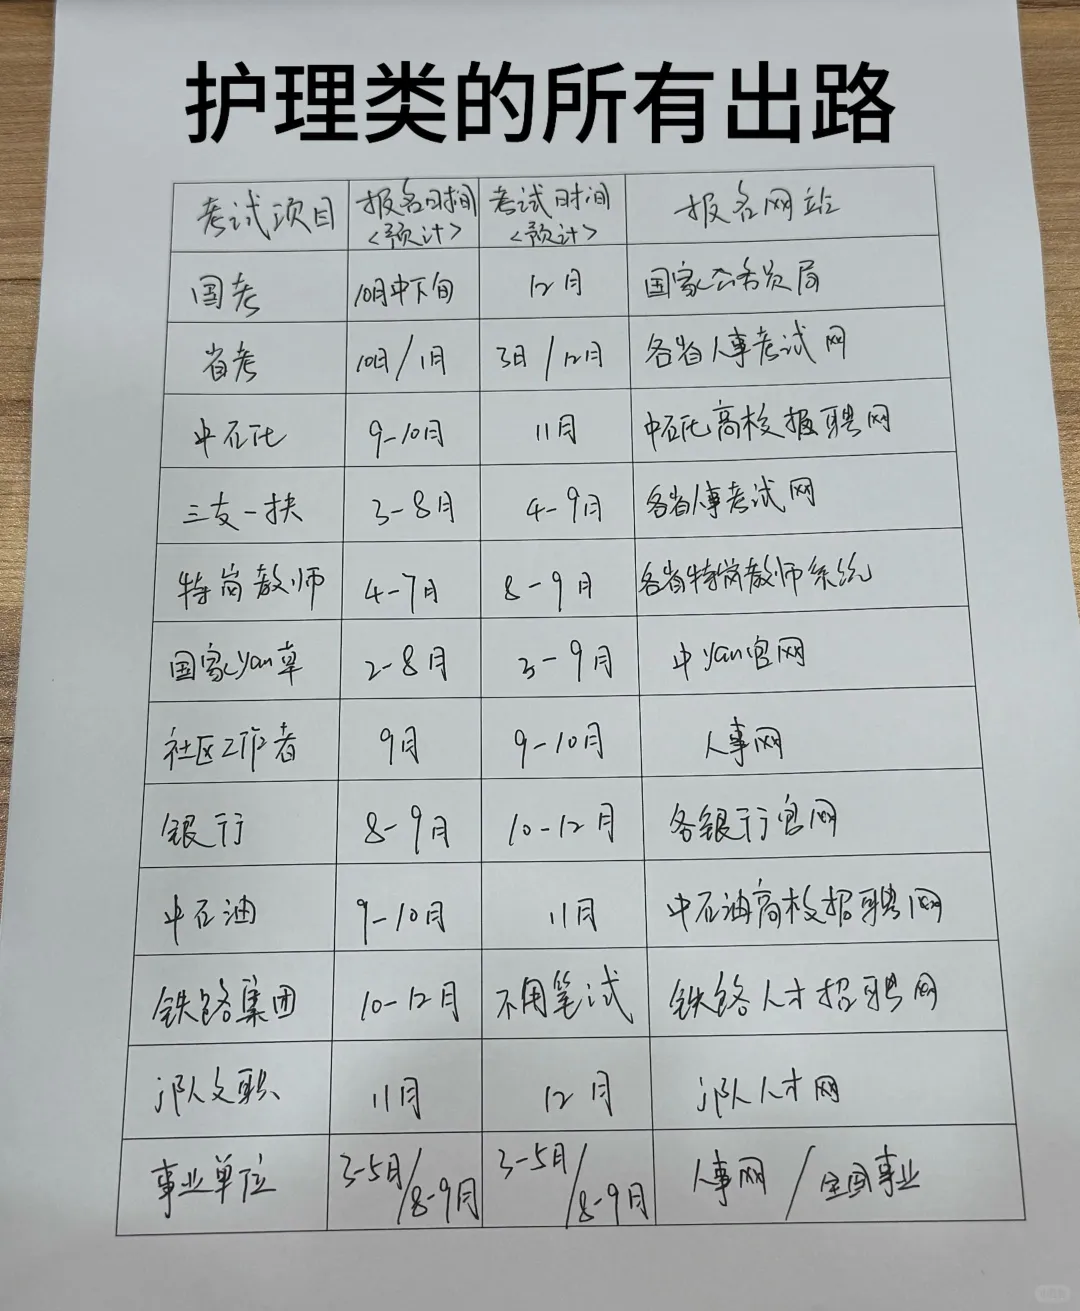 护理类的所有出路
考试项目 报名时间<预计> 考试时间<预计> 报名网站
国考 10月中下旬 12月 国家公务员局
省考 10月/1月 3月/12月 各省人事考试网
中石化 9-10月 11月 中石化高校报聘网
三支一扶 3-8月 4-9月 各省人事考试网
特岗教师 4-7月 8-9月 各省特岗教师系统
国家yan草 2-8月 3-9月 中yan官网
社区工作者 9月 9-10月 人事网
银行 8-9月 10-12月 各银行官网
中石油 9-10月 11月 中石油高校招聘网
铁路集团 10-12月 不用笔试 铁路人才招聘网
jun队文职 11月 12月 jun队人才网
事业单位 3-5月/8-9月 3-5月/8-9月 人事网/全国事业